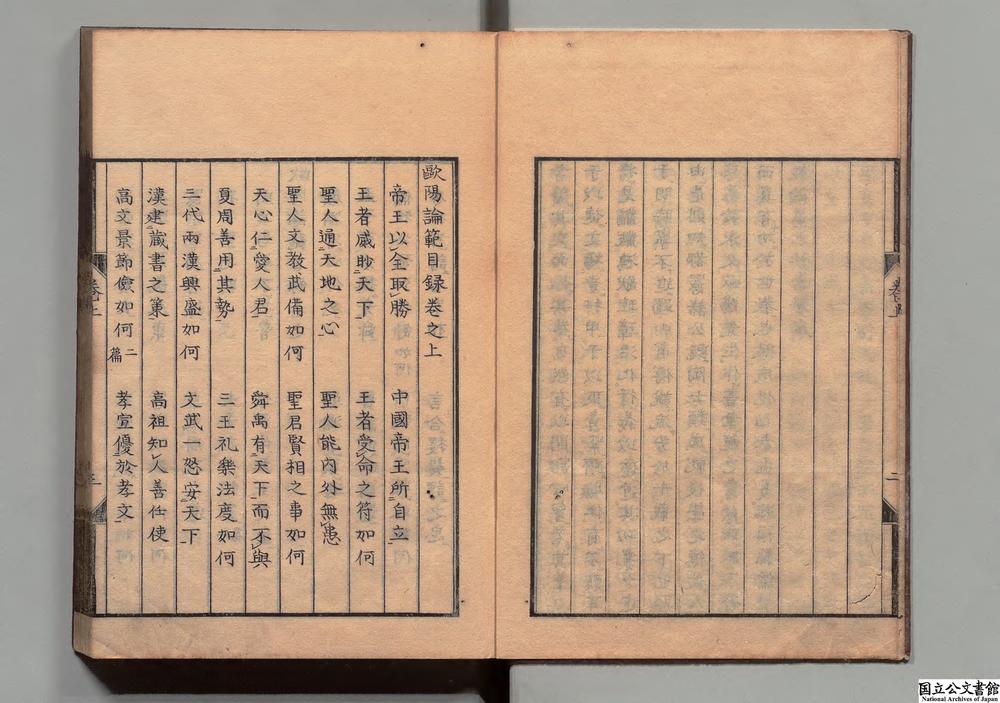 歐陽論範目録卷之上
帝王以全取勝 中國帝王所自立
王者威眇天下 王者受命之符如何
聖人通天地之心 聖人能内外無患
聖人文教武備如何 聖君賢相之事如何
天心仁愛人君 舜禹有天下而不與
夏周善用其勢 三王礼樂法度如何
三代兩漢興盛如何 文武一怒安天下
漢建藏書之策 高祖知人善任使
高文景節儉如何二篇 孝宣優於孝文
卷上
三
卷上
二
国立公文書館
National Archives of Japan